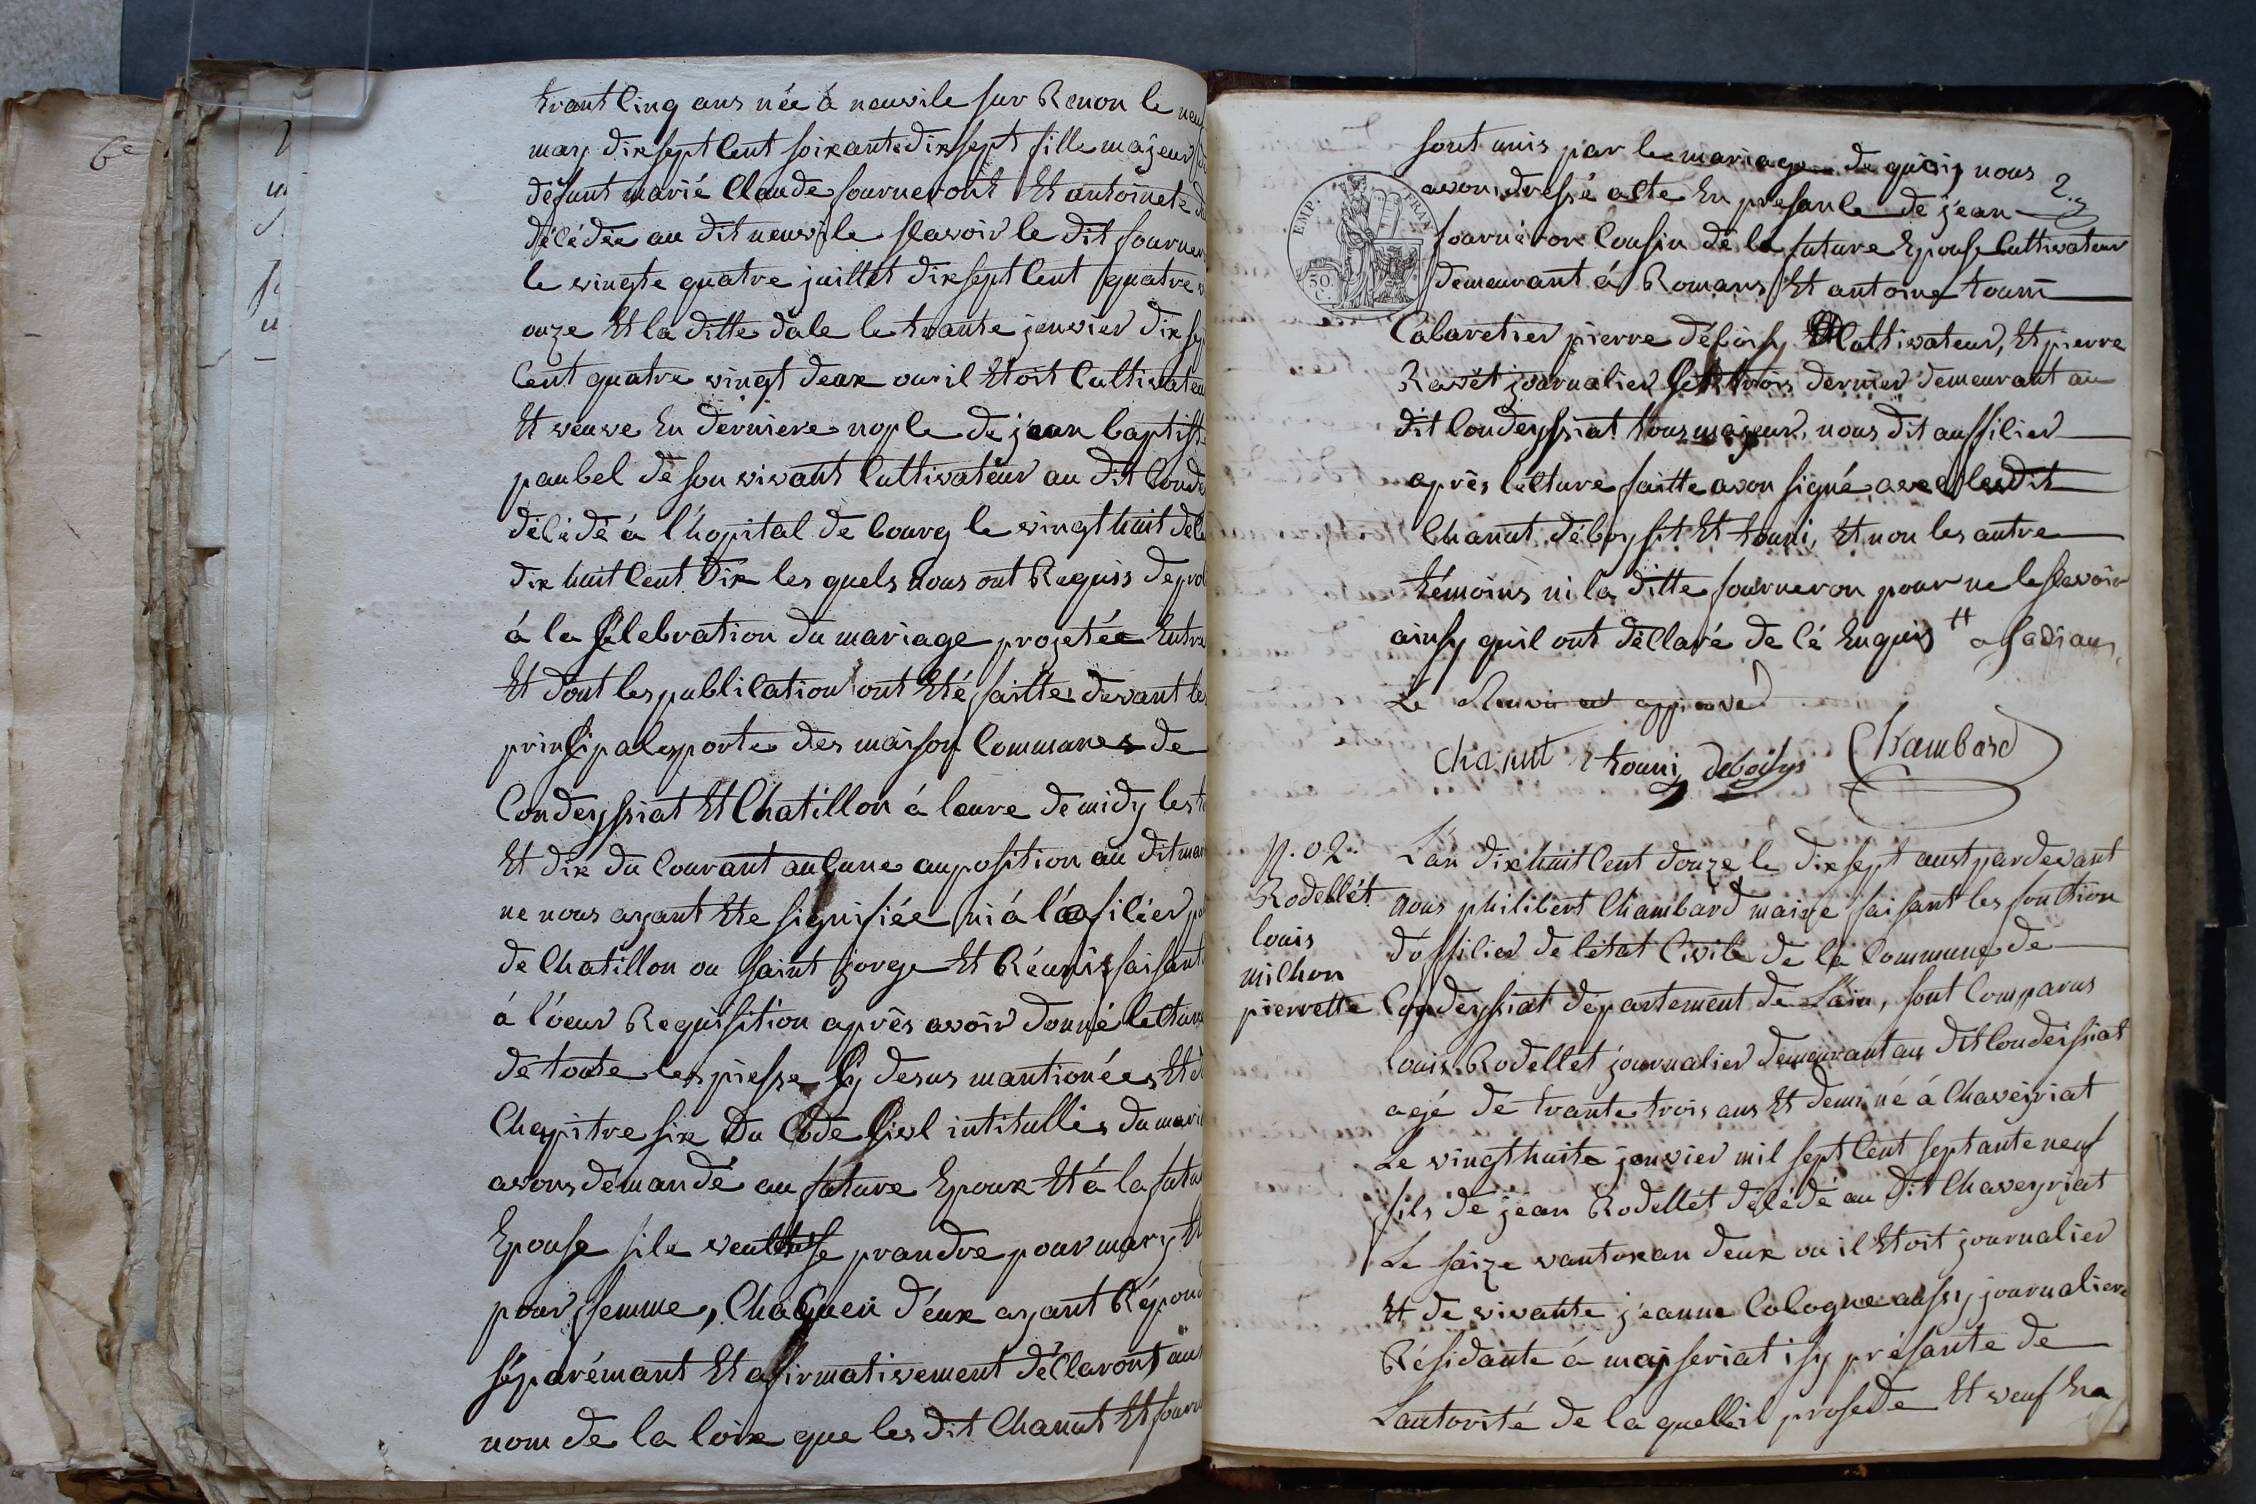 6e
trant Cinq ans née à neuvile sur Renon le neuf
may dix sept Cent soixante dix sept fille majeur de
defunt marié Claude fourneront Et antoinete
décédée au dit neuvile sçavoir le dit fourner
le vingte quatre juillet dix sept Cent quatre
onze Et la ditte dale le trante jenvier dix sep
Cent quatre vingt deux ou il Etoit Cultivateu
Et veuve En derniere nople de jean baptist
paubel de son vivant Cultivateur au dit Conde
décédé à l'hopital de bourg le vingt huit de
dix huit Cent Dix les quels nous ont Requis de pro
à la Célébration du mariage projetée Entre
Et dont les publication ont Eté faitte devant les
prinsipales porte des maison Commanes de
Condeyssiat Et Chatillon à l'eure de midy les
Et dix du Courant auCune auposition au dit mar
ne nous ayant Ete signifiée ni à l'ofilier
de Chatillon ou Saint jorge Et Réunis faisant
à l'oeur Requisition après avoir donné lecture
de toute les piesse Cy desus mantionées Et d
Chapitre six Du Code Civl intitullés du mari
avons demandé au future Epoux Et à la futu
Epouse sile veulle se prandre pour mary Et
pour femme, ChaCuen d'eux ayant Répond
séparémant Et afirmativement déClaront au
nom de la loix que les dit Chanut Et fourn
sont unis par le mariage de quoiy nous
avons dressé acte En presanCe de jean
2.
EMP. FRAN.
50. C.
fourneron Cousin de la future Epouse Cultivateur
demeurant à Romans Et antoine tourni
Cabaretier pierre déboisy Cultivateur, Et pierre
Ravét journalier Ces trois dernier demeurant au
dit Condeyssiat tous majeur, nous dit auffilier
après lecture faitte avon signé avec lesdit
Chanut, déboysst Et touni, Et non les autre
témoins ni la ditte fourneron pour ne le sçavoir
ainsy quil ont déClaré de Cé Enquis
Le Renvoi est approuvé
Chanut touni deboisys Chambard
n. 02.
Rodellét
louis
milhon
pierrette
L'an dix huit Cent douze le dix sept aust pardevant
nous philibert Chambard maire faisant les fonction
d'offilier de l'état Civile de la Commune de
Condeyssiat département de L'ain, sont Comparus
louis Rodellet journalier demeurant au dit Condeissiat
agé de trante trois ans Et demi né à Chaveiriat
Le vingt huite jenvier mil sept Cent septante neuf
fils de jean Rodellet décédé au dit Chaveyriat
Le saize vantoxan deux ou il Etoit journalier
Et de vivante jeanne Cologne aussy journaliere
Résidante à majseriat isy présante de
L'autorité de la quelle il prosede Et veuf En